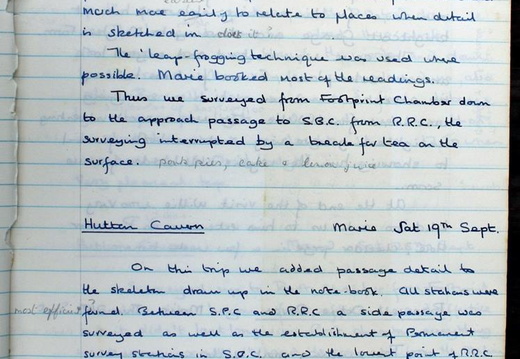 much more easily to relate to places when detail
is sketched in does it?
The 'leap-frogging technique was used where
possible. Marie booked most of the readings.
Thus we surveyed from Footprint Chamber down
to the approach passage to S.B.C. from R.R.C., the
surveying interrupted by a break for tea on the
surface. pork pies, cake &
Hutton Cavern Marie Sat 19th Sept.
On this trip we added passage detail to
the skeleton drawn up in the note-book. All stations were
most efficient?
found. Between S.P.C and R.R.C a side passage was
surveyed as well as the establishment of Permanent
survey stations in S.B.C. and the lowest point of R.R.C